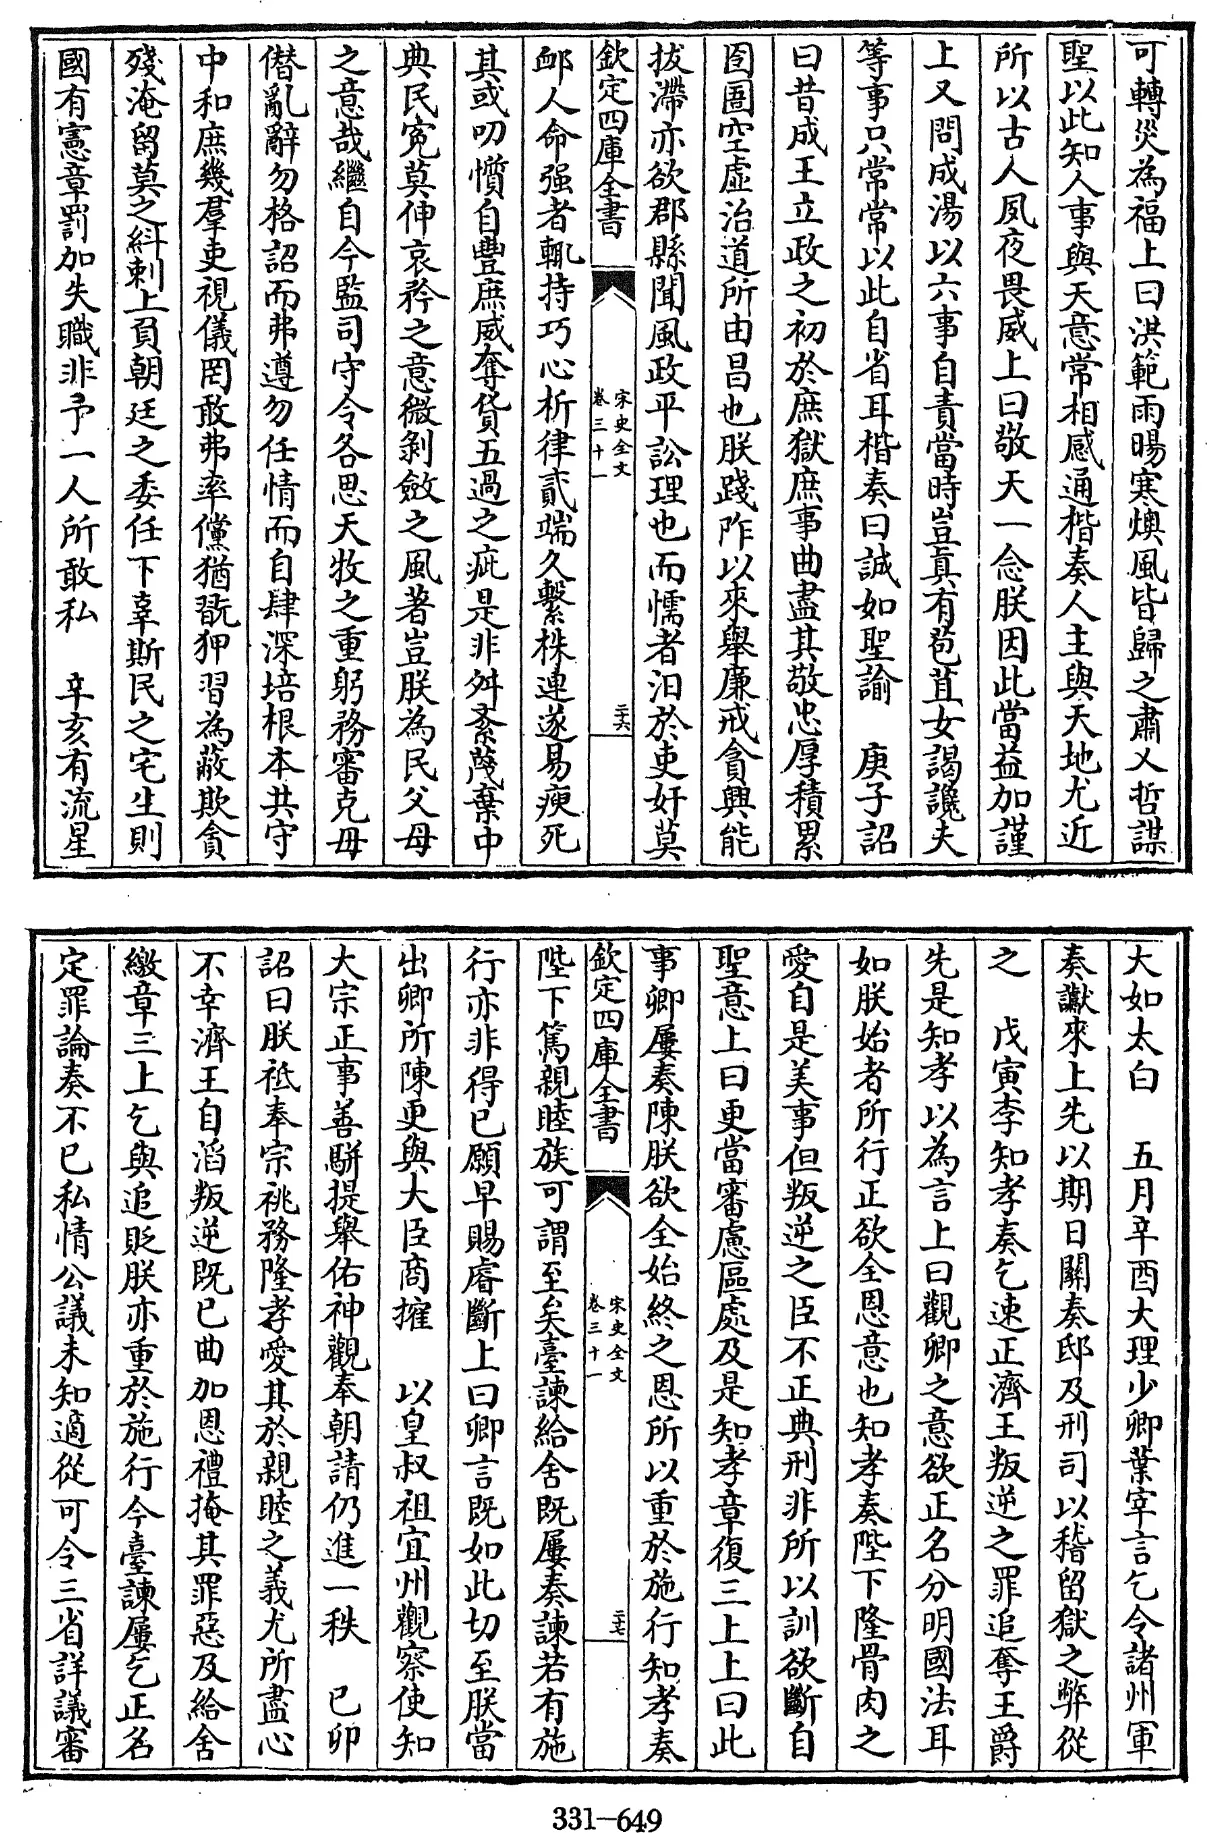 可轉災為福上曰洪範雨暘寒燠風皆歸之肅乂哲謀
聖以此知人事與天意常相感通楷奏人主與天地尤近
所以古人夙夜畏威上曰敬天一念朕因此當益加謹
上又問成湯以六事自責當時豈真有苞苴女謁讒夫
等事只常常以此自省耳楷奏曰誠如聖諭　庚子詔
曰昔成王立政之初於庶獄庶事曲盡其敬忠厚積累
囹圄空虛治道所由昌也朕踐阼以來舉廉戒貪興能
拔滯亦欲郡縣聞風政平訟理也而懦者汨於吏奸莫
欽定四庫全書
宋史全文
卷三十一
二六
䘏人命强者輒持巧心析律貳端久繫株連遂易瘐死
其或叨懫自豐庶威奪貨五過之疵是非舛紊蔑棄中
典民寃莫伸哀矜之意微剝斂之風著豈朕為民父母
之意哉繼自今監司守令各思天牧之重躬務審克毋
僭亂辭勿格詔而弗遵勿任情而自肆深培根本共守
中和庶幾羣吏視儀罔敢弗率儻猶翫狎習為蔽欺貪
殘淹留莫之糾刺上負朝廷之委任下辜斯民之宅生則
國有憲章罰加失職非予一人所敢私　辛亥有流星
大如太白　五月辛酉大理少卿葉宰言乞令諸州軍
奏讞來上先以期日關奏邸及刑司以稽留獄之弊從
之　戊寅李知孝奏乞速正濟王叛逆之罪追奪王爵
先是知孝以為言上曰觀卿之意欲正名分明國法耳
如朕始者所行正欲全恩意也知孝奏陛下隆骨肉之
愛自是美事但叛逆之臣不正典刑非所以訓欲斷自
聖意上曰更當審慮區處及是知孝章復三上上曰此
事卿屢奏陳朕欲全始終之恩所以重於施行知孝奏
欽定四庫全書
宋史全文
卷三十一
二七
陛下篤親睦族可謂至矣臺諫給舍既屢奏諫若有施
行亦非得已願早賜睿斷上曰卿言既如此切至朕當
出卿所陳更與大臣商搉　以皇叔祖宜州觀察使知
大宗正事善駢提舉佑神觀奉朝請仍進一秩　己卯
詔曰朕祗奉宗祧務隆孝愛其於親睦之義尤所盡心
不幸濟王自滔叛逆既已曲加恩禮掩其罪惡及給舍
繳章三上乞與追貶朕亦重於施行今臺諫屢乞正名
定罪論奏不已私情公議未知適從可令三省詳議審
331-649